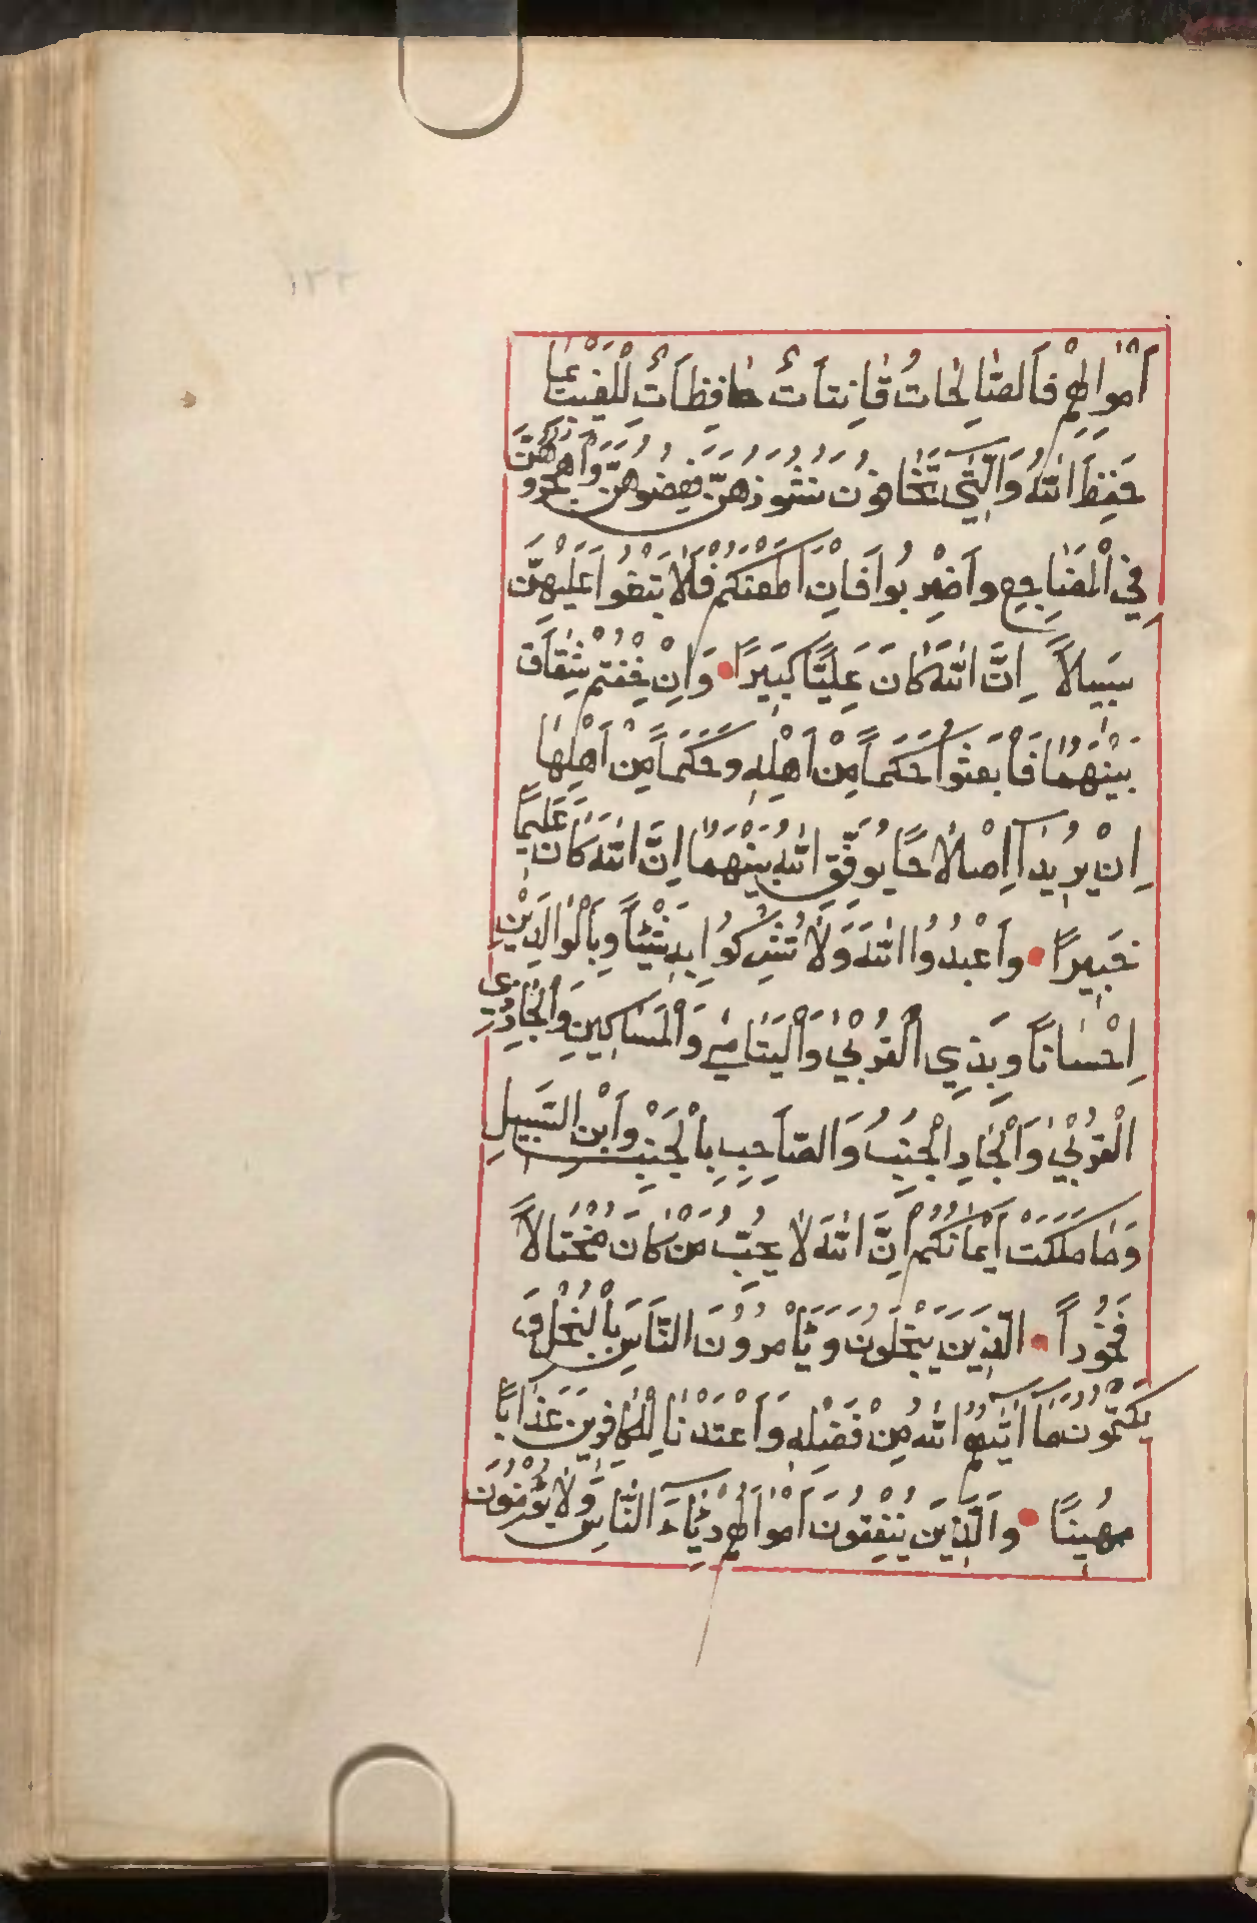 ١٣٢
اَمْوٰالِهِمْ فَاَلصّٰالِحٰاتُ قٰانِتٰاتٌ حٰافِظٰاتٌ لِلْغَيْبِ بِمٰا
حَفِظَ اللّٰهُ وَاَلّٰتِي تَخٰافُونَ نُشُوزَهُنَّ فَعِضُوهُنَّ وَاُهْجُرُوهُنَّ
فِي اَلْمَضٰاجِعِ وَاَضْرِبُوا فَاِنْ اَطَعْنَكُمْ فَلاٰ تَبْغُوا عَلَيْهِنَّ
سَبِيلاً اِنَّ اللّٰهَ كٰانَ عَلِيًّا كَبِيَرًا وَاِنْ خِفْتُمْ شِقٰاقَ
بَيْنَهُمٰا فَاْبْعَثُوا حَكَماً مِنْ اَهْلِهِ وَحَكَماً مِنْ اَهْلِهٰا
اِنْ يُرِيدٰا اِصْلاٰحًا يُوَفِّقِ اللّٰهُ بَيْنَهُمٰا اِنَّ اللّٰهَ كٰانَ عَلِيمًا
خَبِيرًا وَاَعْبُدُوا اللّٰهَ وَلاٰ تُشْرِكُوا بِهِ شَيْئًا وَبِاْلْوٰالِدَيْنِ
اِحْسٰانًا وَبِذِي اَلْقُرْبىٰ وَاْلْيَتٰامىٰ وَاْلْمَسٰاكِينِ وَاْلْجٰارِ ذِي
اْلْقُرْبىٰ وَاْلْجٰارِ اْلْجُنُبُ وَالصّٰاَحِبِ بِاْلْجَنْبِ وَاَبْنِ السَّبِيلِ
وَمٰا مَلَكَتْ اَيْمٰانُكُمْ اِنَّ اللّٰهَ لاٰ يُحِبُّ مَنْ كٰانَ مُخْتٰالاً
فَخُوراً الَّذِينَ يَبْخَلُونَ وَيَأْمُرُونَ النّٰاسَ بِاْلْبُخْلِ وَ
يَكْتُمُونَ مٰا اٰتٰيهُمُ اللّٰهُ مِنْ فَضْلِهِ وَاَعْتَدْنٰا لِلْكٰافِرِينَ عَذٰابًا
مُهِينًا وَاَلَّذِينَ يُنْفِقُونَ اَمْوٰالَهُمْ رِئٰاءَ النّٰاسِ وَلاٰ يُؤْمِنُونَ